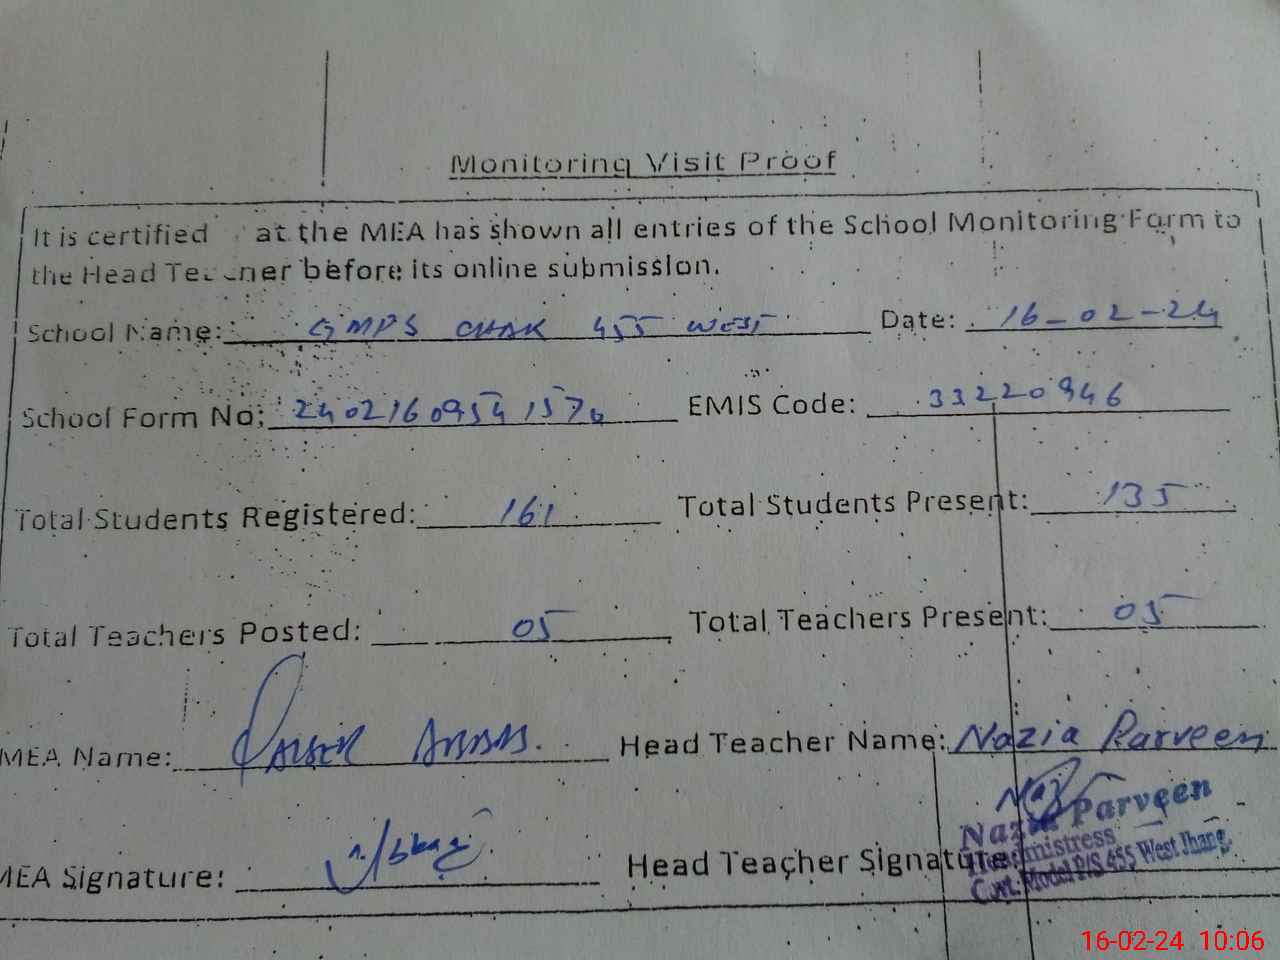 Monitoring Visit Proof
It is certified at the MEA has shown all entries of the School Monitoring Form to
the Head Teacher before its online submission.
School Name: GMPS CHAK 455 WEST Date: 16-02-24
School Form No: 24021609541576 EMIS Code: 33220946
Total Students Registered: 161 Total Students Present: 135
Total Teachers Posted: 05 Total Teachers Present: 05
MEA Name: QAISER ABBAS. Head Teacher Name: Nazia Parveen
MEA Signature: Head Teacher Signature:
Nazia Parveen
Headmistress
Govt. Model P/S 455 West Jhang.
16-02-24 10:06